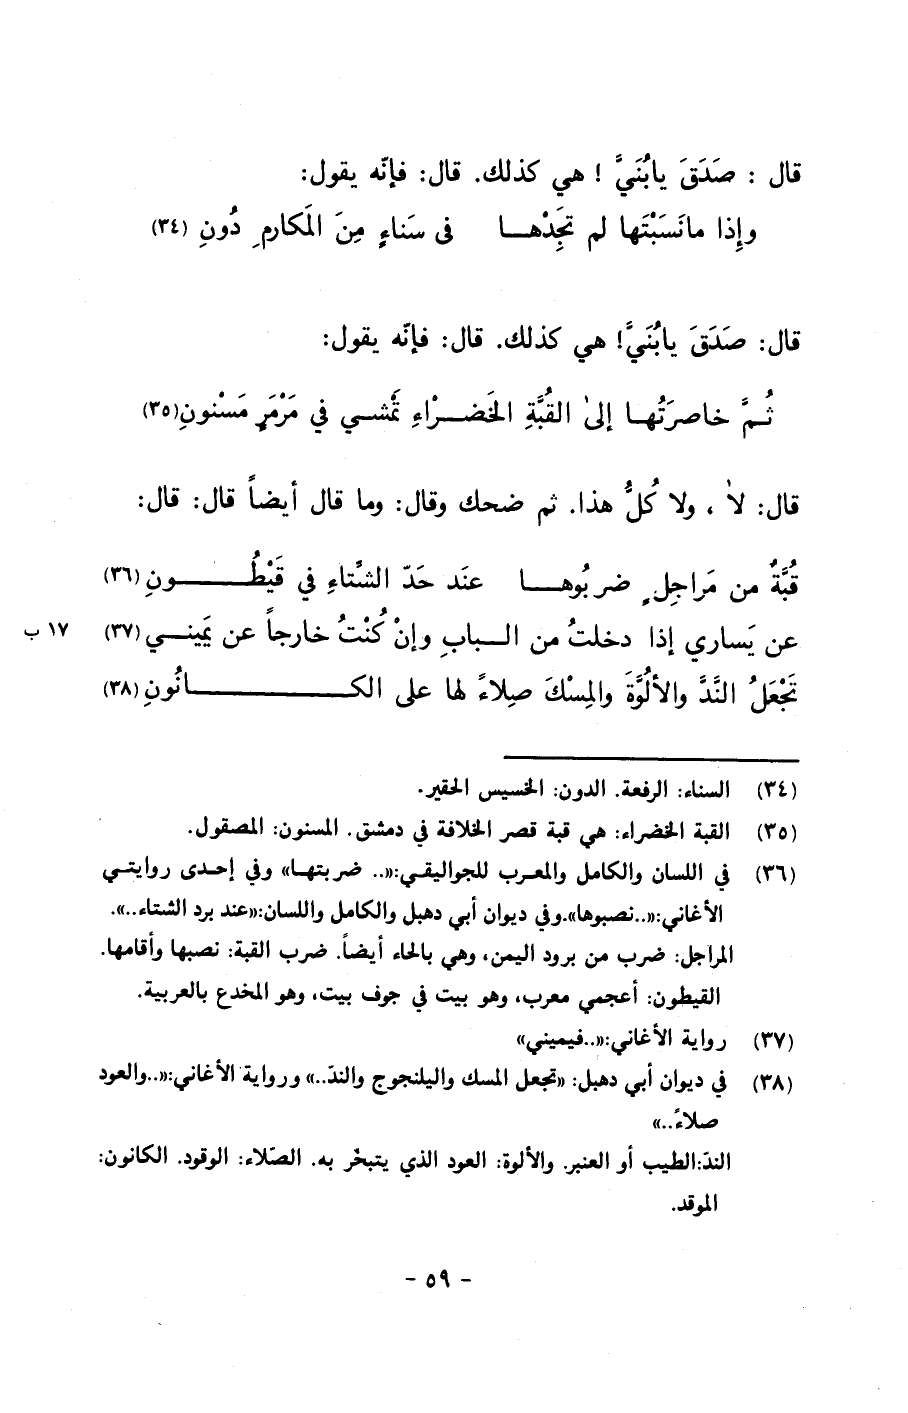 قال : صَدَقَ يابُنَيَّ ! هي كذلك. قال: فإنّه يقول:
وإِذا مانَسَبْتَها لم تَجِدْهـــا في سَناءٍ مِنَ المَكارمِ دُونِ (٣٤)
قال: صَدَقَ يابُنَيَّ! هي كذلك. قال: فإنّه يقول:
ثُــمَّ خاصرَتُهــا إلىٰ القُبَّةِ الخَضــــرْاءِ تَمْشــي في مَرْمَرٍ مَسْنونِ(٣٥)
قال: لاٰ ، ولا كُلُّ هذا. ثم ضحك وقال: وما قال أيضاً قال: قال:
قُبَّةٌ من مَراجِلٍ ضربُوهــــا عنَد حَدّ الشتَاءِ في قَيْطُــــــونِ (٣٦)
عن يَساري إذا دخلتُ من البــابِ وإنْ كُنْتُ خارجاً عن يَمينــي (٣٧) ١٧ ب
تَجْعَلُ النَّدَّ والألُوَّةَ والمِسْكَ صِلاءً لها على الكــــــــــــانُونِ (٣٨)
(٣٤) السناء: الرفعة. الدون: الخسيس الحقير.
(٣٥) القبة الخضراء: هي قبة قصر الخلافة في دمشق. المسنون: المصقول.
(٣٦) في اللسان والكامل والمعرب للجواليقي:«.. ضربتها» وفي إحدى روايتي
الأغاني:«..نصبوها».وفي ديوان أبي دهبل والكامل واللسان:«عند برد الشتاء..».
المراجل: ضرب من برود اليمن، وهي بالحاء أيضاً. ضرب القبة: نصبها وأقامها.
القيطون: أعجمي معرب، وهو بيت في جوف بيت، وهو المخدع بالعربية.
(٣٧) رواية الأغاني:«..فيميني»
(٣٨) في ديوان أبي دهبل: «تجعل المسك واليلنجوج والندّ..» ورواية الأغاني:«..والعود
صلاءً..»
الندّ:الطيب أو العنبر. والألوة: العود الذي يتبخّر به. الصّلاء: الوقود. الكانون:
الموقد.
- ٥٩ -